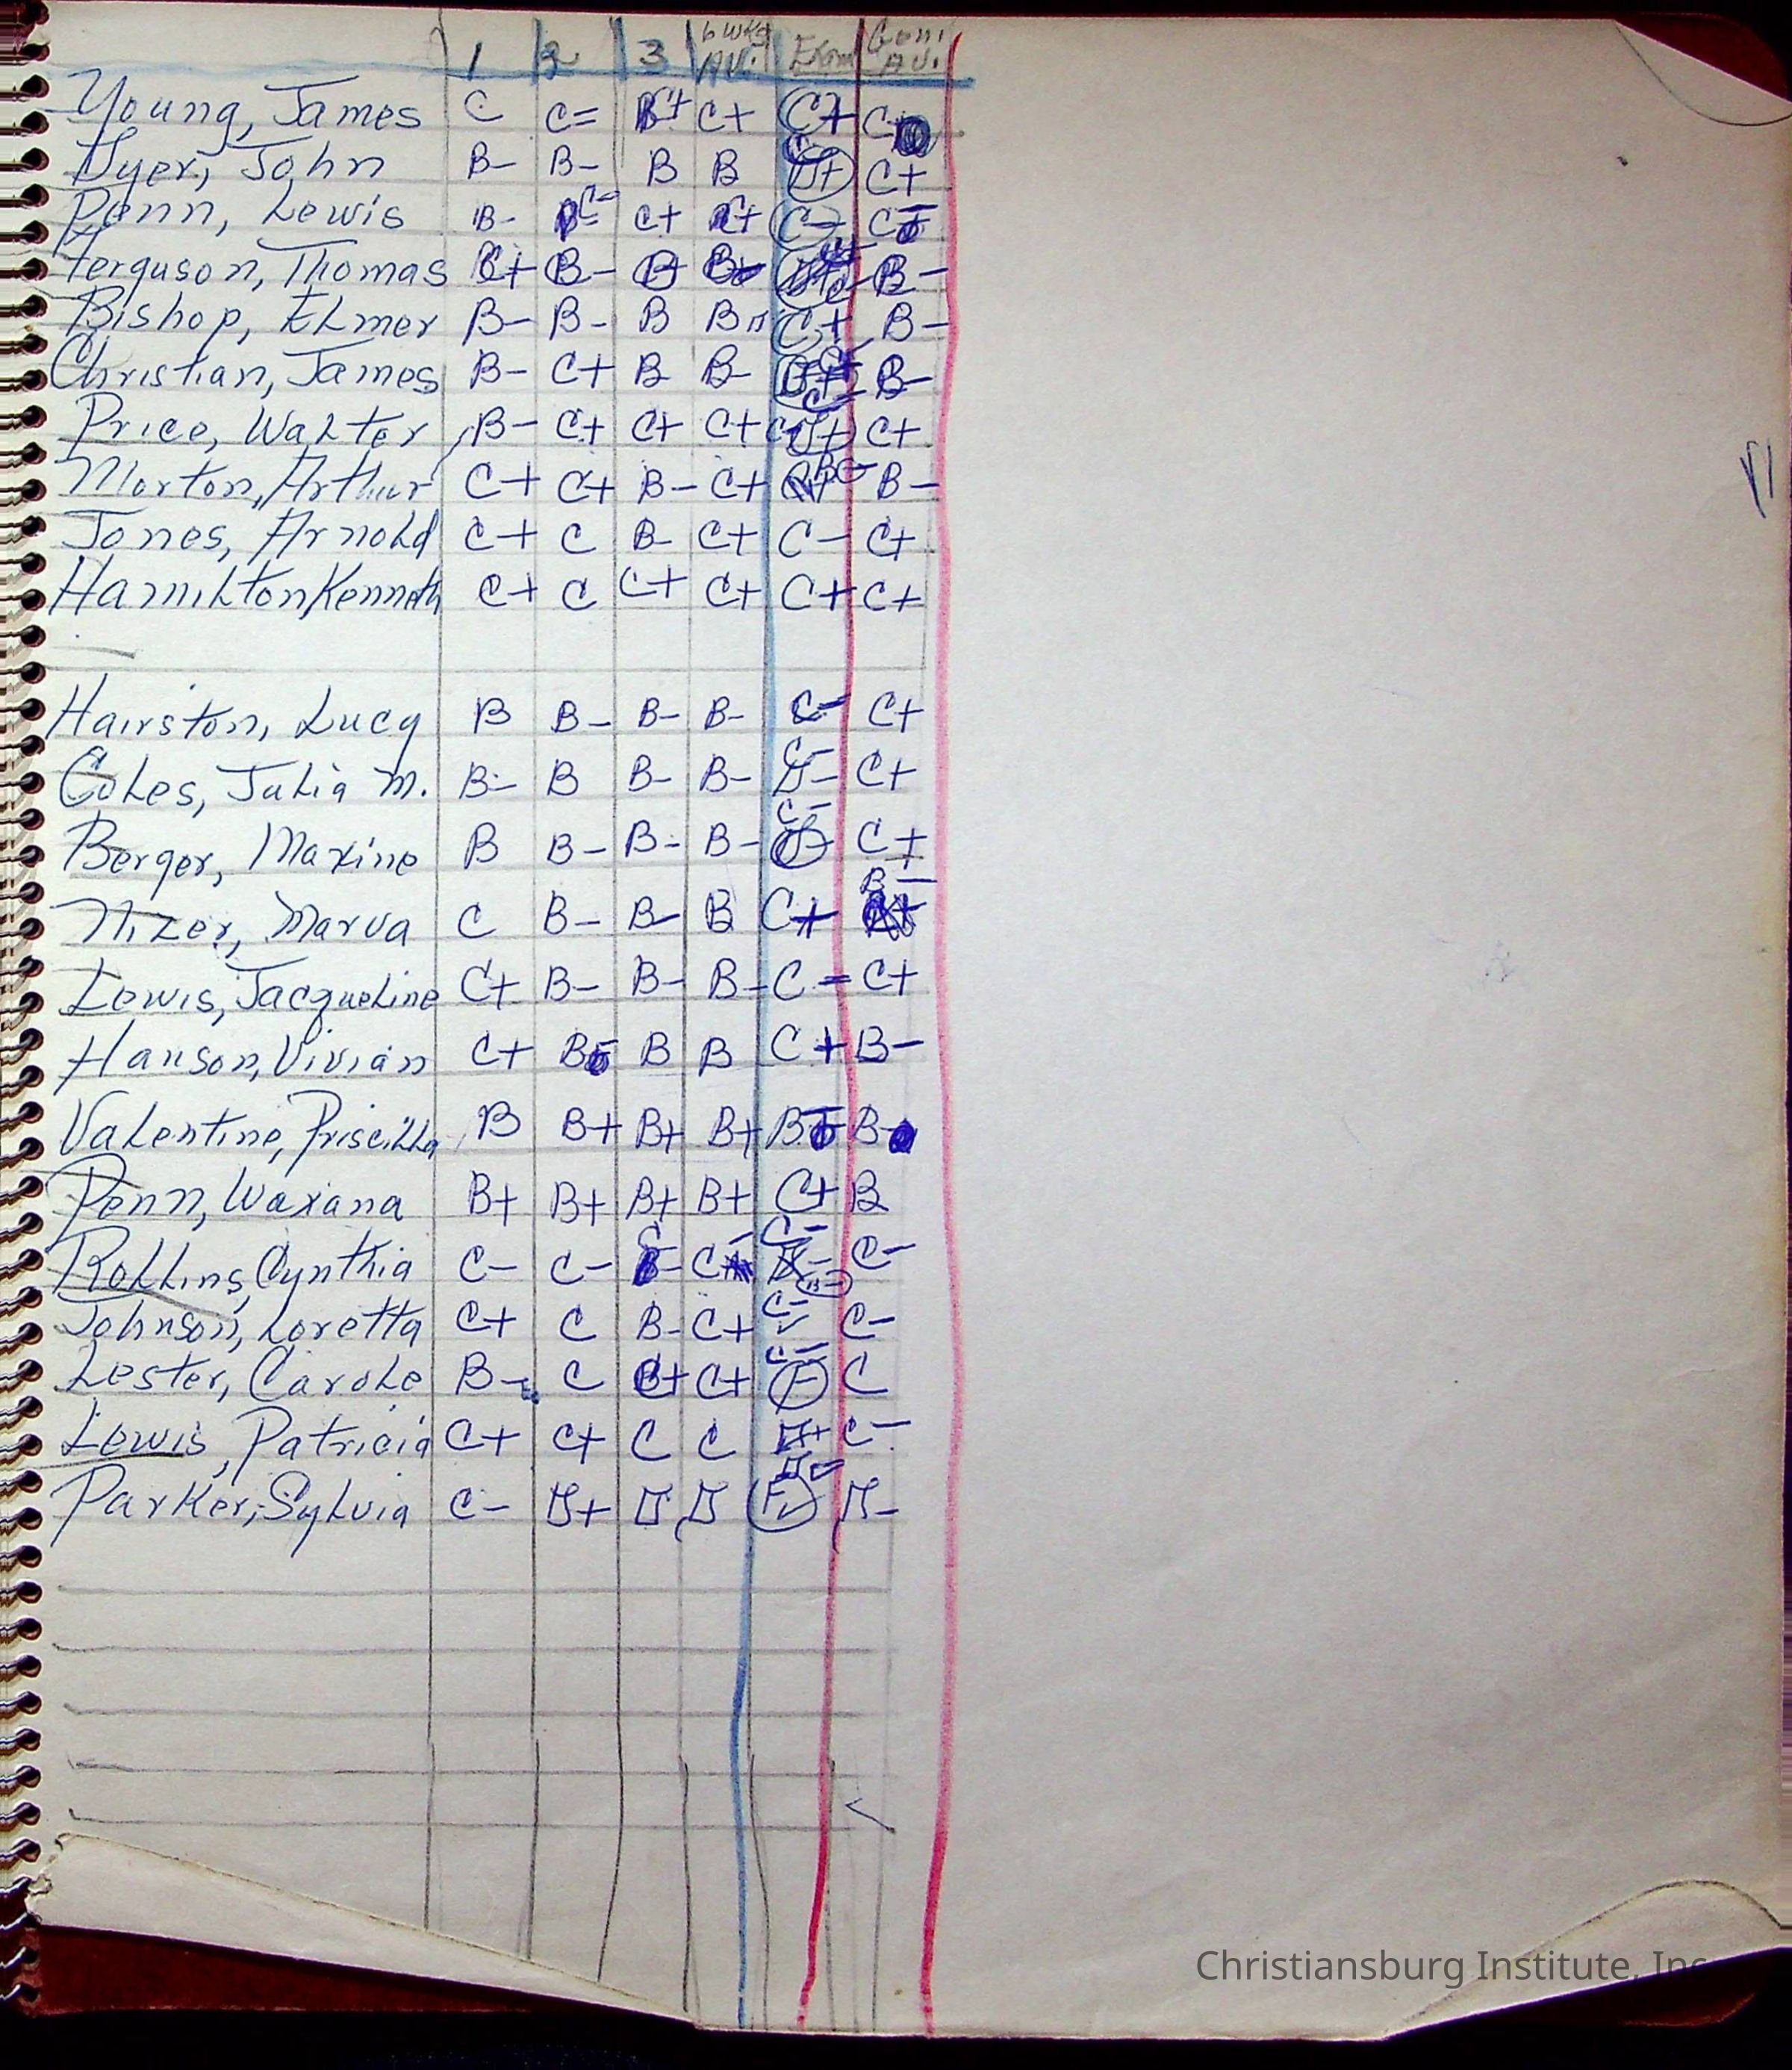 1 2 3 6 wks AV. Exam Gen. AV.
Young, James C C= C+ C+ C+ C
Dyer, John B- B- B B C+
Penn, Lewis B- C- C+ C+ C- C-
Ferguson, Thomas C+ B- B B-
Bishop, Elmer B- B- B B C+ B-
Christian, James B- C+ B B- B-
Price, Walter B- C+ C+ C+ C+
Morton, Arthur C+ C+ B- C+ B-
Jones, Arnold C+ C B- C+ C- C+
Hamilton, Kenneth C+ C C+ C+ C+ C+
Hairston, Lucy B B- B- B- C- C+
Coles, Julia M. B- B B- B- C- D- C+
Berger, Maxine B B- B- B- C- C+
Nizer, Marva C B- B- B C+ B-
Lewis, Jacqueline C+ B- B- B- C= C+
Hanson, Vivian C+ B B B C+ B-
Valentine, Priscilla B B+ B+ B+ B- B-
Penn, Waxana B+ B+ B+ B+ C+ B
Rollins, Cynthia C- C- C- C- C- C-
Johnson, Loretta C+ C B- C+ C- C-
Lester, Carole B- C C+ C+ C- F C
Lewis, Patricia C+ C+ C C D+ C-
Parker, Sylvia C- D+ D D D- F D-
Christiansburg Institute, Inc.